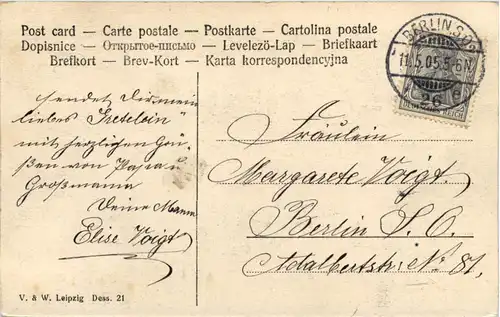 Post card — Carte postale — Postkarte — Cartolina postale
Dopisnice — Открытое-письмо — Levelező-Lap — Briefkaart
Brefkort — Brev-Kort — Karta korrespondencyjna
BERLIN S.O.
11.5.05.5-6N.
26
DEUTSCHES REICH
sendet Dir mein
liebes "Gretelein"
mit herzlichen Grü-
ßen von Papa u
Großmama
Deine Mama
Elise Voigt
Fräulein
Margarete Voigt.
Berlin S. O.
Adalbertstr. No 81.
V. & W. Leipzig Dess. 21